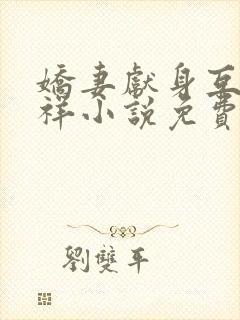 嬌妻獻身互
祥小說免費
劉雙平